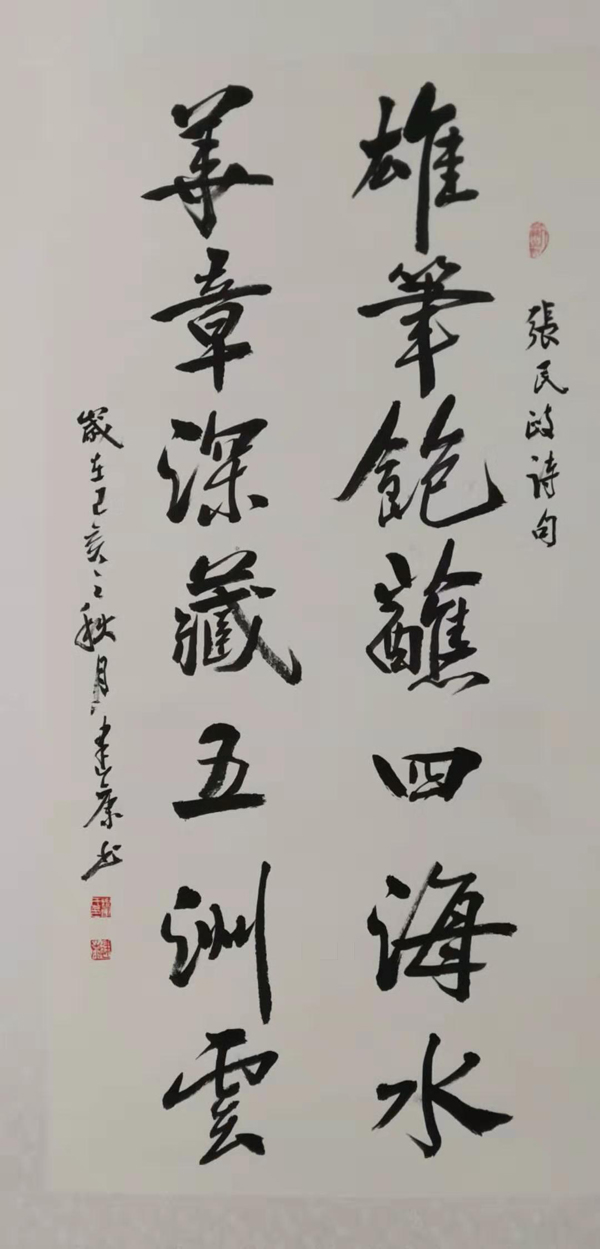 張民政诗句
雄筆飽蘸四海水
華章深藏五洲雲
歲在己亥之秋月建康书